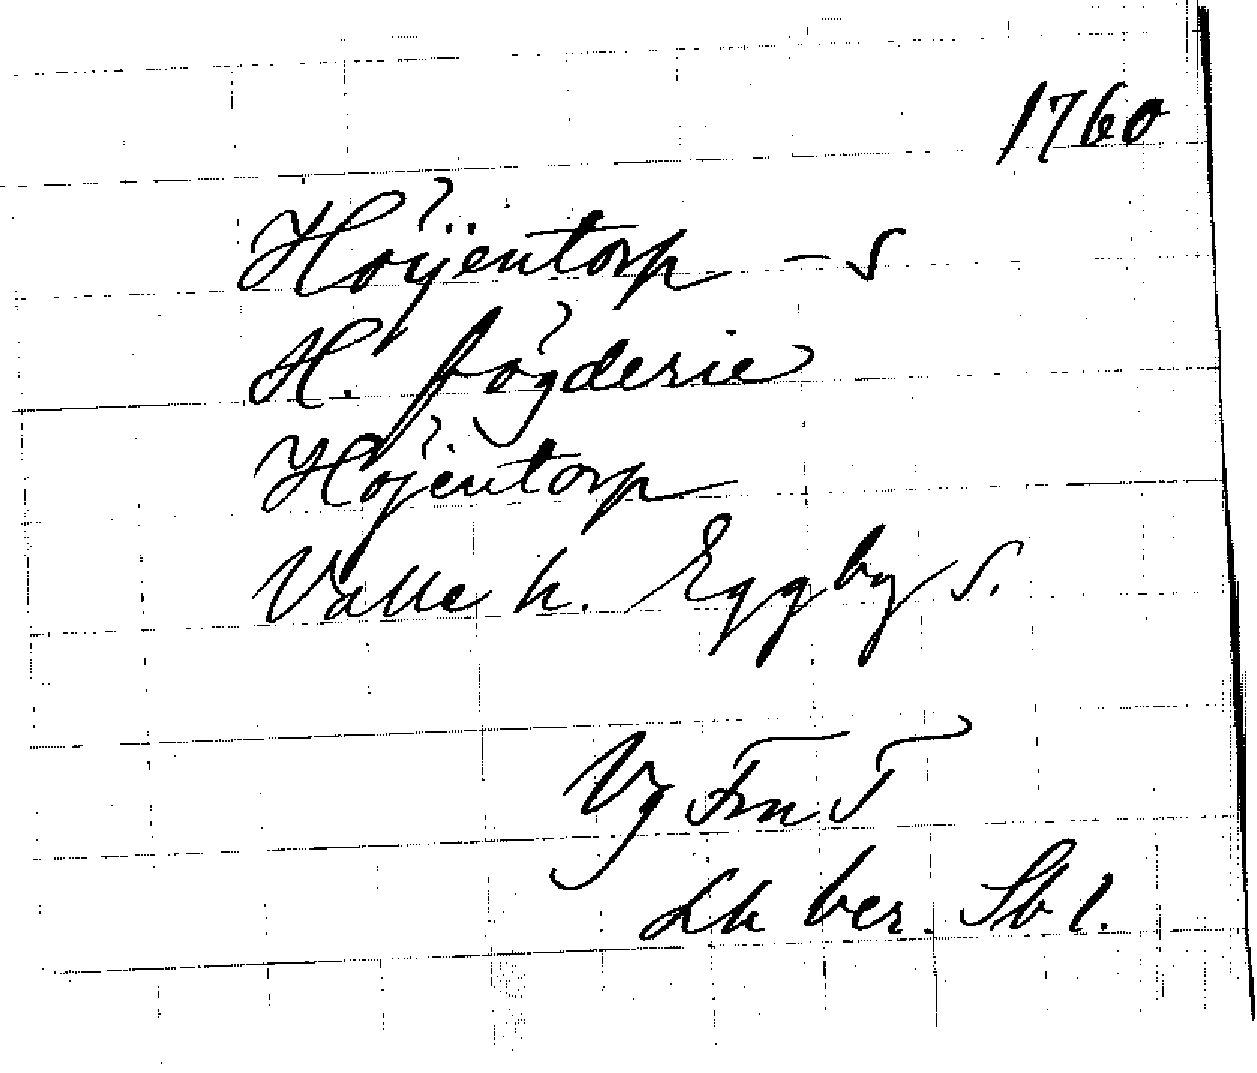 1760
Höijentorp - S
H. fögderie
Höjentorp
Valle h. Eggby s.
Vg Frn T
Lh ber. Sb 1.